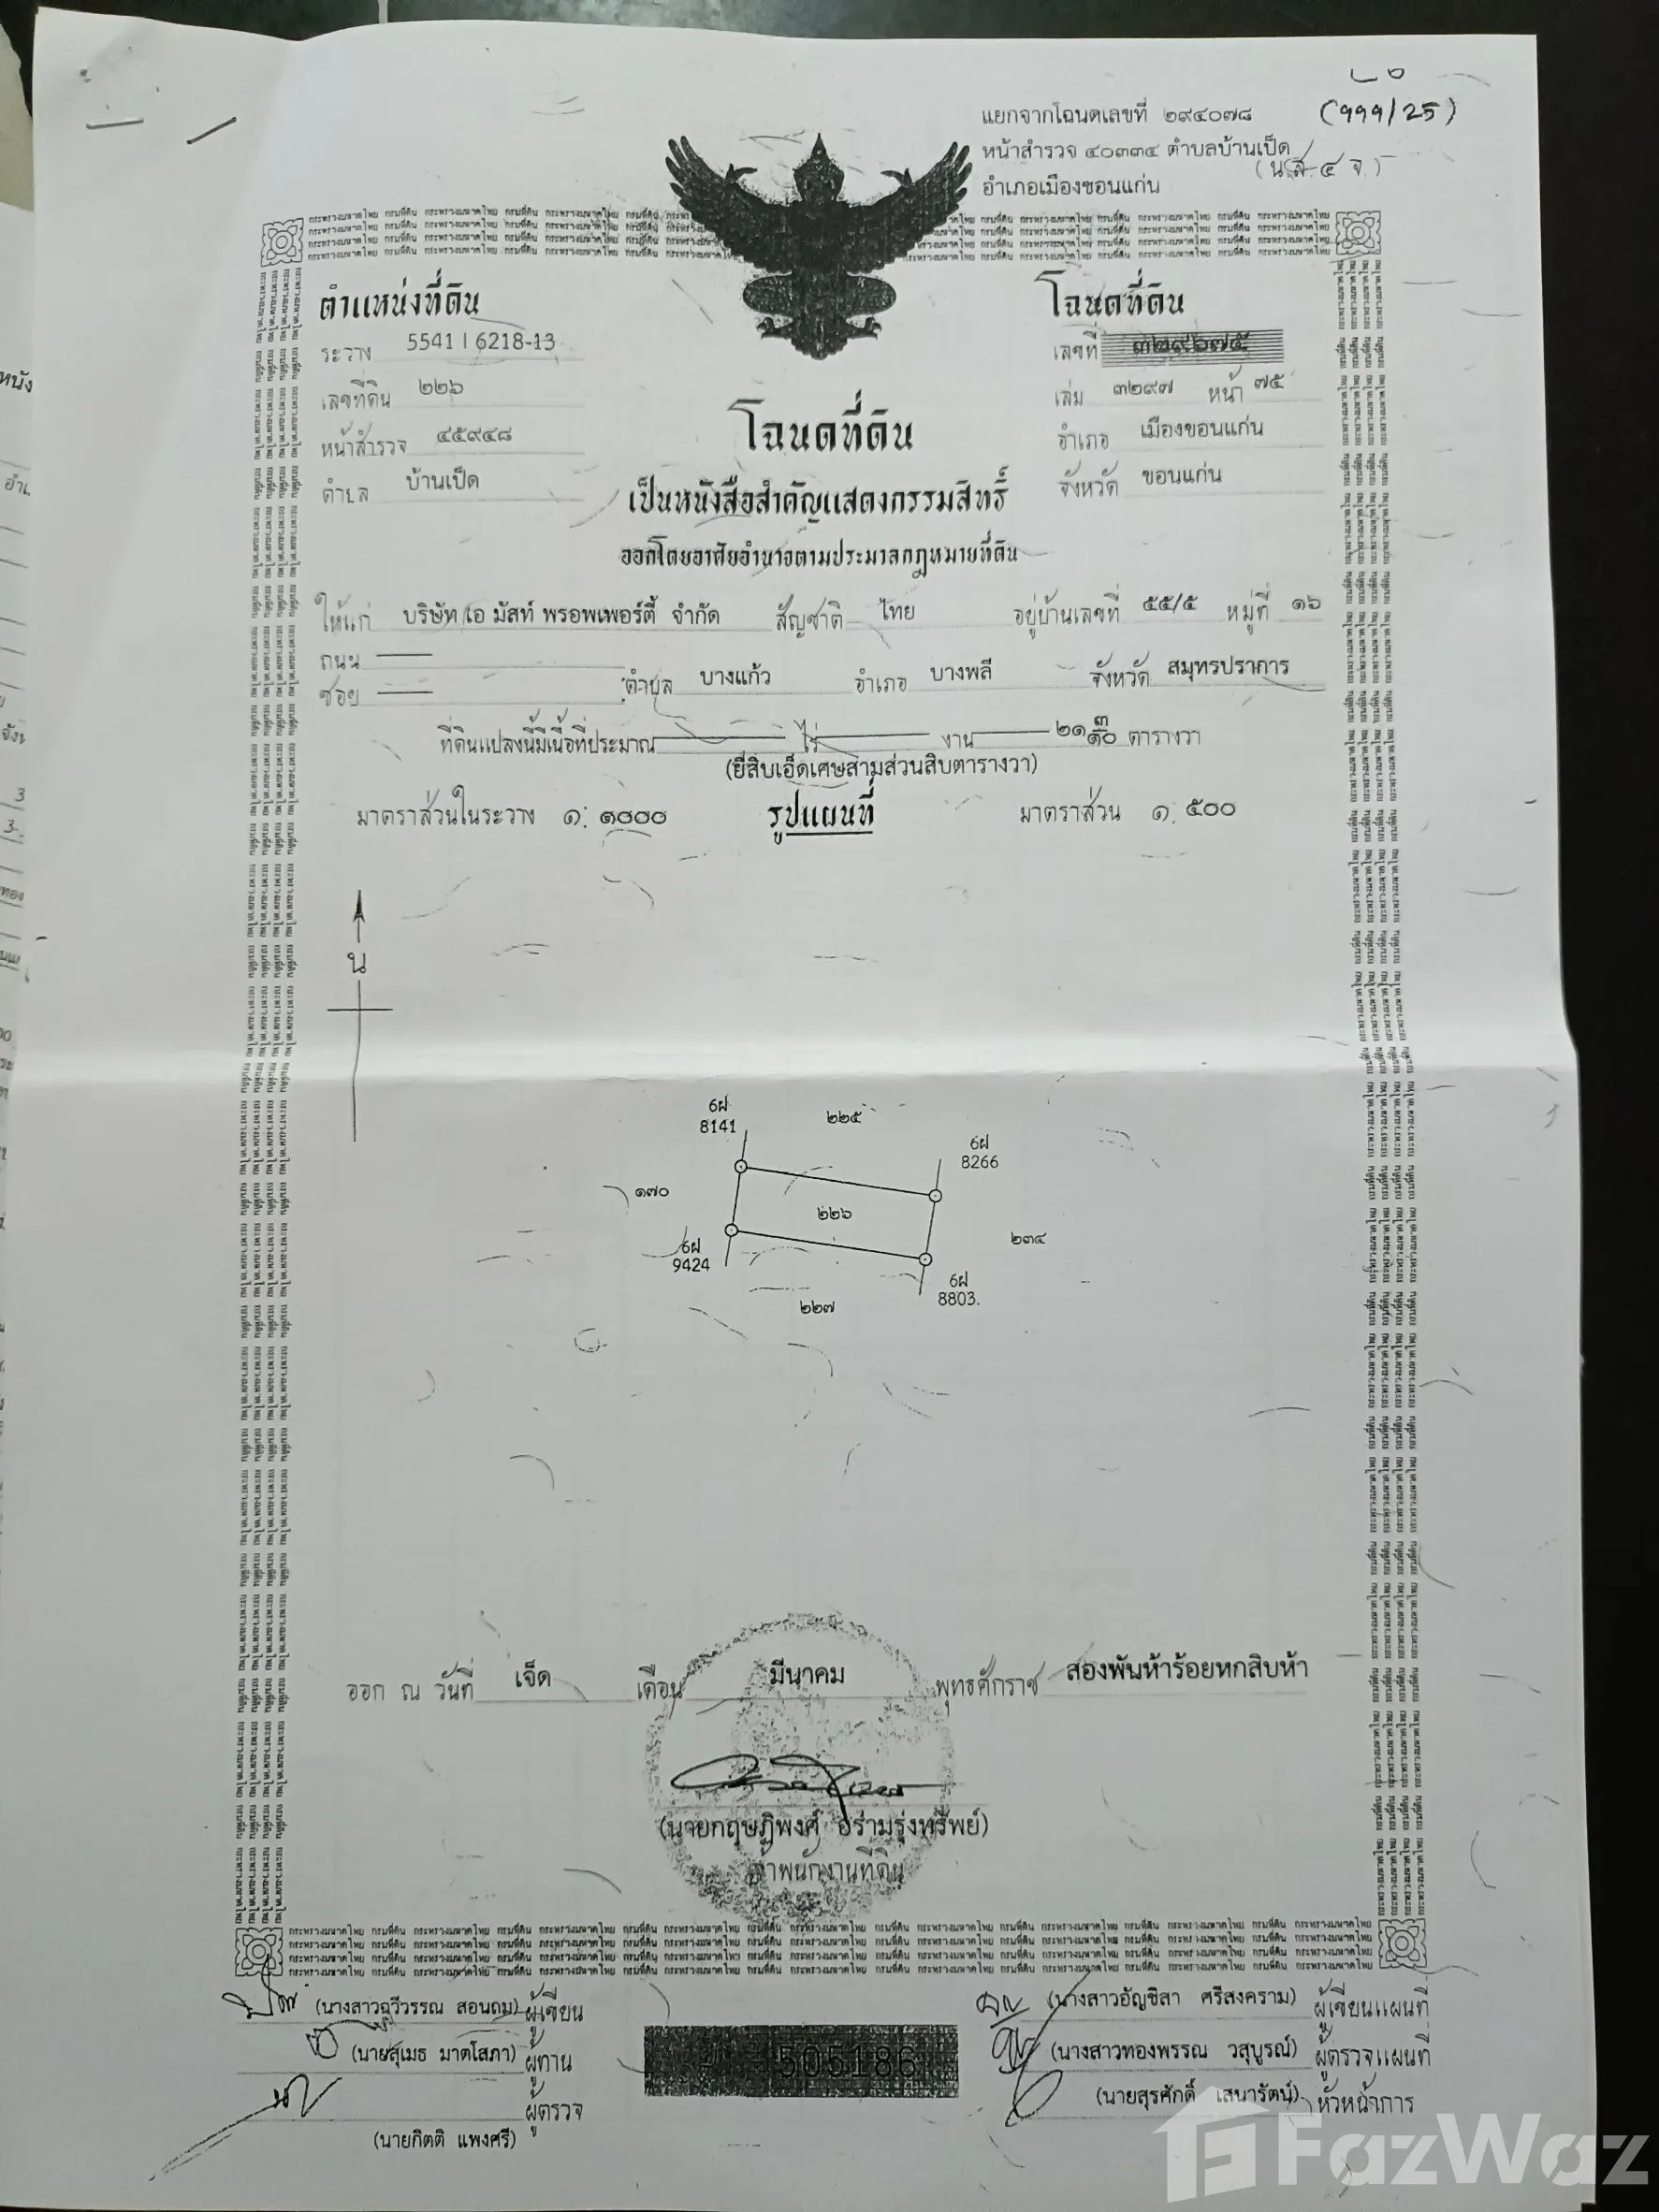 (999/25)
แยกจากโฉนดเลขที่ ๒๙๔๐๗๘
หน้าสำรวจ ๔๐๓๓๔ ตำบลบ้านเป็ด
(น.ส.๔ จ.)
อำเภอเมืองขอนแก่น
ตำแหน่งที่ดิน
โฉนดที่ดิน
ระวาง 5541 I 6218-13
เลขที่ ๓๒๙๖๗๕
เลขที่ดิน ๒๒๖
เล่ม ๓๒๙๗ หน้า ๗๕
หน้าสำรวจ ๔๕๙๔๘
อำเภอ เมืองขอนแก่น
ตำบล บ้านเป็ด
จังหวัด ขอนแก่น
โฉนดที่ดิน
เป็นหนังสือสำคัญแสดงกรรมสิทธิ์
ออกโดยอาศัยอำนาจตามประมวลกฎหมายที่ดิน
ให้แก่ บริษัท เอ มัสท์ พรอพเพอร์ตี้ จำกัด สัญชาติ ไทย อยู่บ้านเลขที่ ๕๕/๕ หมู่ที่ ๑๖
ถนน
ซอย ตำบล บางแก้ว อำเภอ บางพลี จังหวัด สมุทรปราการ
ที่ดินแปลงนี้มีเนื้อที่ประมาณ ไร่ งาน ๒๑ ๓/๑๐ ตารางวา
(ยี่สิบเอ็ดเศษสามส่วนสิบตารางวา)
มาตราส่วนในระวาง ๑: ๑๐๐๐ รูปแผนที่ มาตราส่วน ๑: ๕๐๐
น
6ฝ
8141
๒๒๕
6ฝ
8266
๑๗๐
๒๒๖
๒๓๔
6ฝ
9424
6ฝ
8803
๒๒๗
ออก ณ วันที่ เจ็ด เดือน มีนาคม พุทธศักราช สองพันห้าร้อยหกสิบห้า
(นายกฤษฎิพงศ์ อร่ามรุ่งทรัพย์)
เจ้าพนักงานที่ดิน
(นางสาวฉวีวรรณ สอนถม) ผู้เขียน
(นางสาวอัญชิสา ศรีสงคราม) ผู้เขียนแผนที่
(นายสุเมธ มาตโสภา) ผู้ทาน
(นางสาวทองพรรณ วสุบูรณ์) ผู้ตรวจแผนที่
505186
ผู้ตรวจ
(นายสุรศักดิ์ เสนารัตน์) หัวหน้าการ
(นายกิตติ แพงศรี)
FazWaz